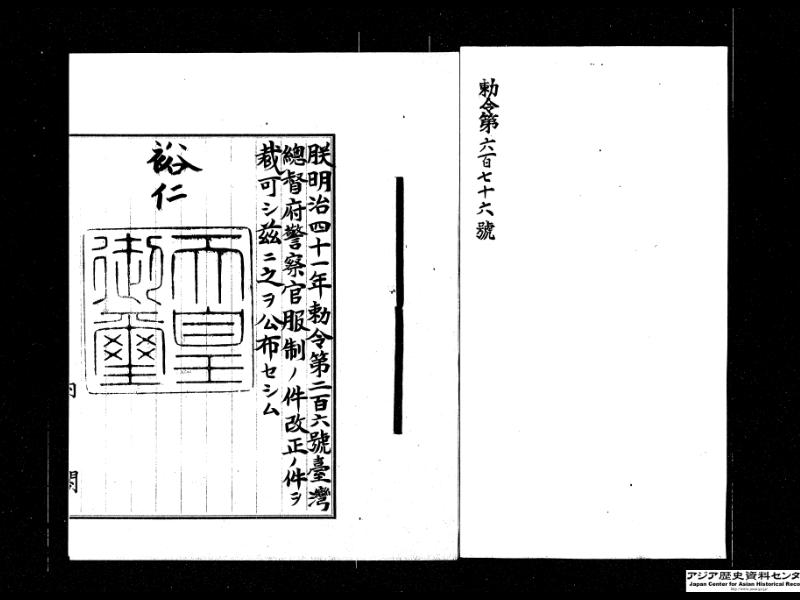 勅令第六百七十六號
朕明治四十一年勅令第二百六號臺灣
總督府警察官服制ノ件改正ノ件ヲ
裁可シ茲ニ之ヲ公布セシム
裕仁
天皇
御璽
内閣
アジア歴史資料センタ
Japan Center for Asian Historical Reco